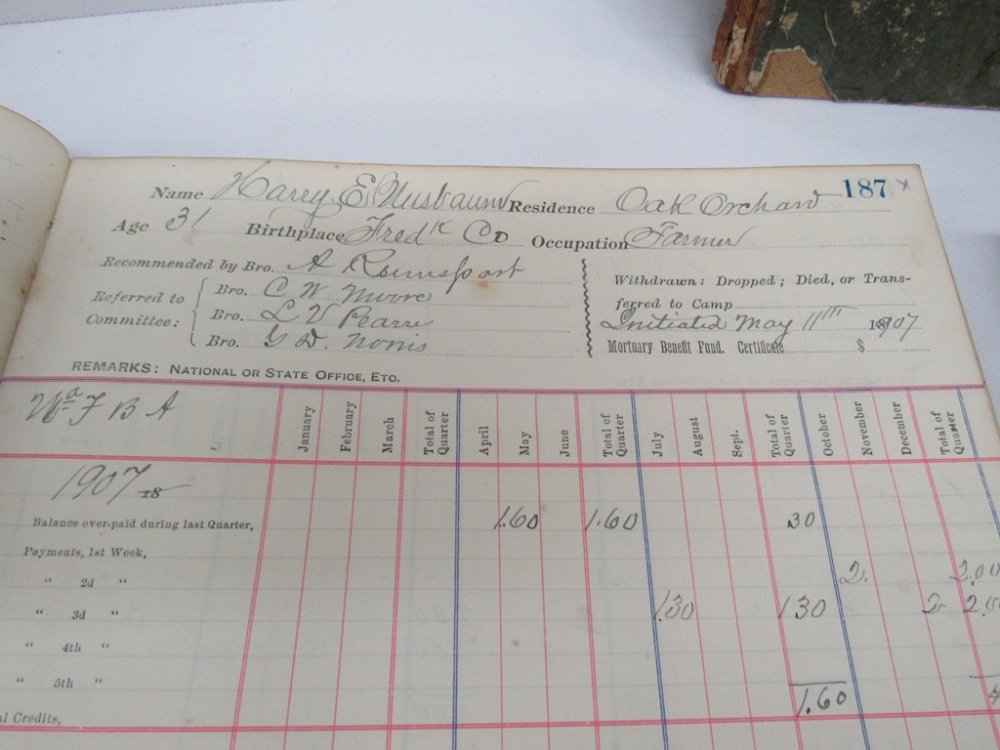 Name Harry. E. Nusbaum Residence Oak Orchard 187 x
Age 31 Birthplace Fredk Co Occupation Farmer
Recommended by Bro. A
Referred to Committee:
Bro. C W Moore
Bro. L V Pearre
Bro. G D. Norris
Withdrawn; Dropped; Died, or Trans-
ferred to Camp
Initiated May 11th 1907
Mortuary Benefit Fund. Certificate $
REMARKS: NATIONAL OR STATE OFFICE, ETC.
F B A
January February March Total of Quarter April May June Total of Quarter July August Sept. Total of Quarter October November December Total of Quarter
1907 18
Balance over-paid during last Quarter, 1.60 1.60 .30
Payments, 1st Week,
" 2d " 2. 2.00
" 3d " 1.30 1 30 2
" 4th "
" 5th "
1.60
al Credits,